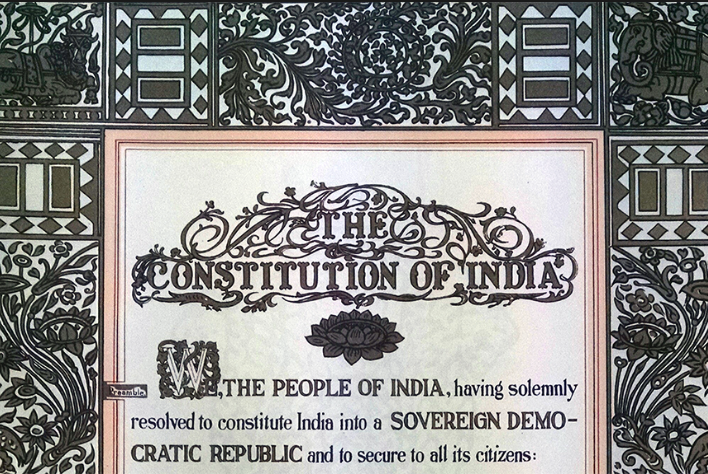 THE
CONSTITUTION OF INDIA
WE, THE PEOPLE OF INDIA, having solemnly
Preamble
resolved to constitute India into a SOVEREIGN DEMO-
CRATIC REPUBLIC and to secure to all its citizens: